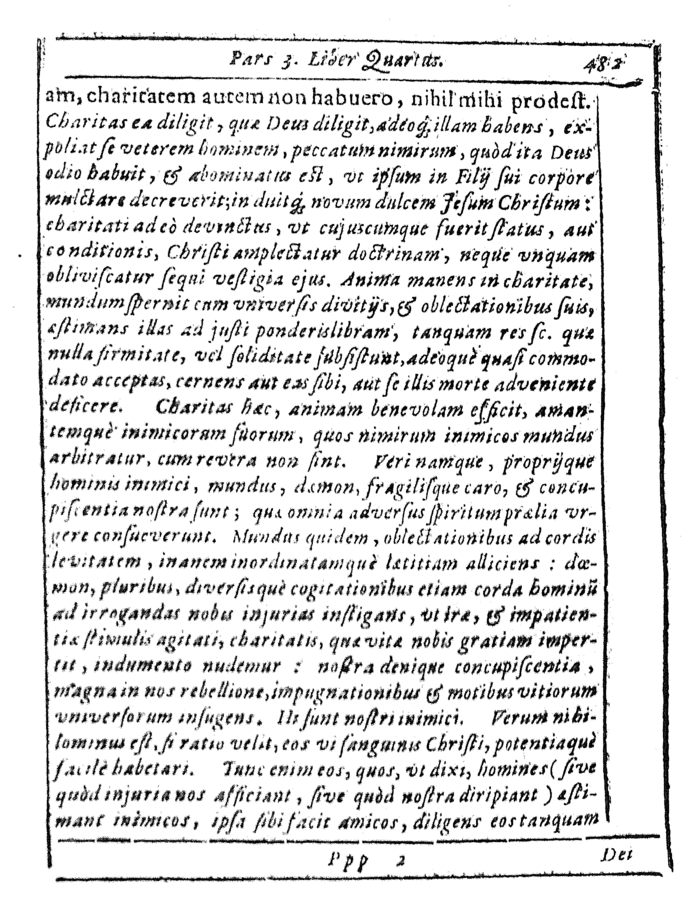 Pars 3. Liber Quartus. 482
am, charitatem autem non habuero, nihil mihi prodest.
Charitas ea diligit, quæ Deus diligit, adeoq́; illam habens, ex-
poliat ſe veterem hominem, peccatum nimirum, quòd ita Deus
odio habuit, & abominatus eſt, vt ipſum in Filij ſui corpore
mulctare decreverit; induitq́; novum dulcem Jeſum Chriſtum:
charitati adeò devinctus, vt cujuscumque fuerit ſtatus, aut
conditionis, Chriſti amplectatur doctrinam, neque vnquam
obliviſcatur ſequi veſtigia ejus. Anima manens in charitate,
mundum ſpernit cum vniverſis divitijs, & oblectationibus ſuis,
æſtimans illas ad juſti ponderis libram, tanquam res ſc. quæ
nulla firmitate, vel ſoliditate ſubſiſtunt, adeoquè quaſi commo-
dato acceptas, cernens aut eas ſibi, aut ſe illis morte adveniente
deficere. Charitas hæc, animam benevolam efficit, aman-
temquè inimicorum ſuorum, quos nimirum inimicos mundus
arbitratur, cum revera non ſint. Veri namque, proprijque
hominis inimici, mundus, dæmon, fragiliſque caro, & concu-
piſcentia noſtra ſunt; quæ omnia adverſus ſpiritum prælia vr-
gere conſueverunt. Mundus quidem, oblectationibus ad cordis
levitatem, inanem inordinatamquè lætitiam alliciens: dæ-
mon, pluribus, diverſisquè cogitationibus etiam corda hominū
ad irrogandas nobis injurias inſtigans, vt iræ, & impatien-
tiæ ſtimulis agitati, charitatis, quæ vitæ nobis gratiam imper-
tit, indumento nudemur: noſtra denique concupiſcentia,
magna in nos rebellione, impugnationibus & motibus vitiorum
vniverſorum inſugens. Hi ſunt noſtri inimici. Verum nihi-
lominus eſt, ſi ratio velit, eos vi ſanguinis Chriſti, potentiaquè
facilè habetari. Tunc enim eos, quos, vt dixi, homines (ſive
quòd injuria nos afficiant, ſive quòd noſtra diripiant) æſti-
mant inimicos, ipſa ſibi facit amicos, diligens eos tanquam
Ppp 2 Dei